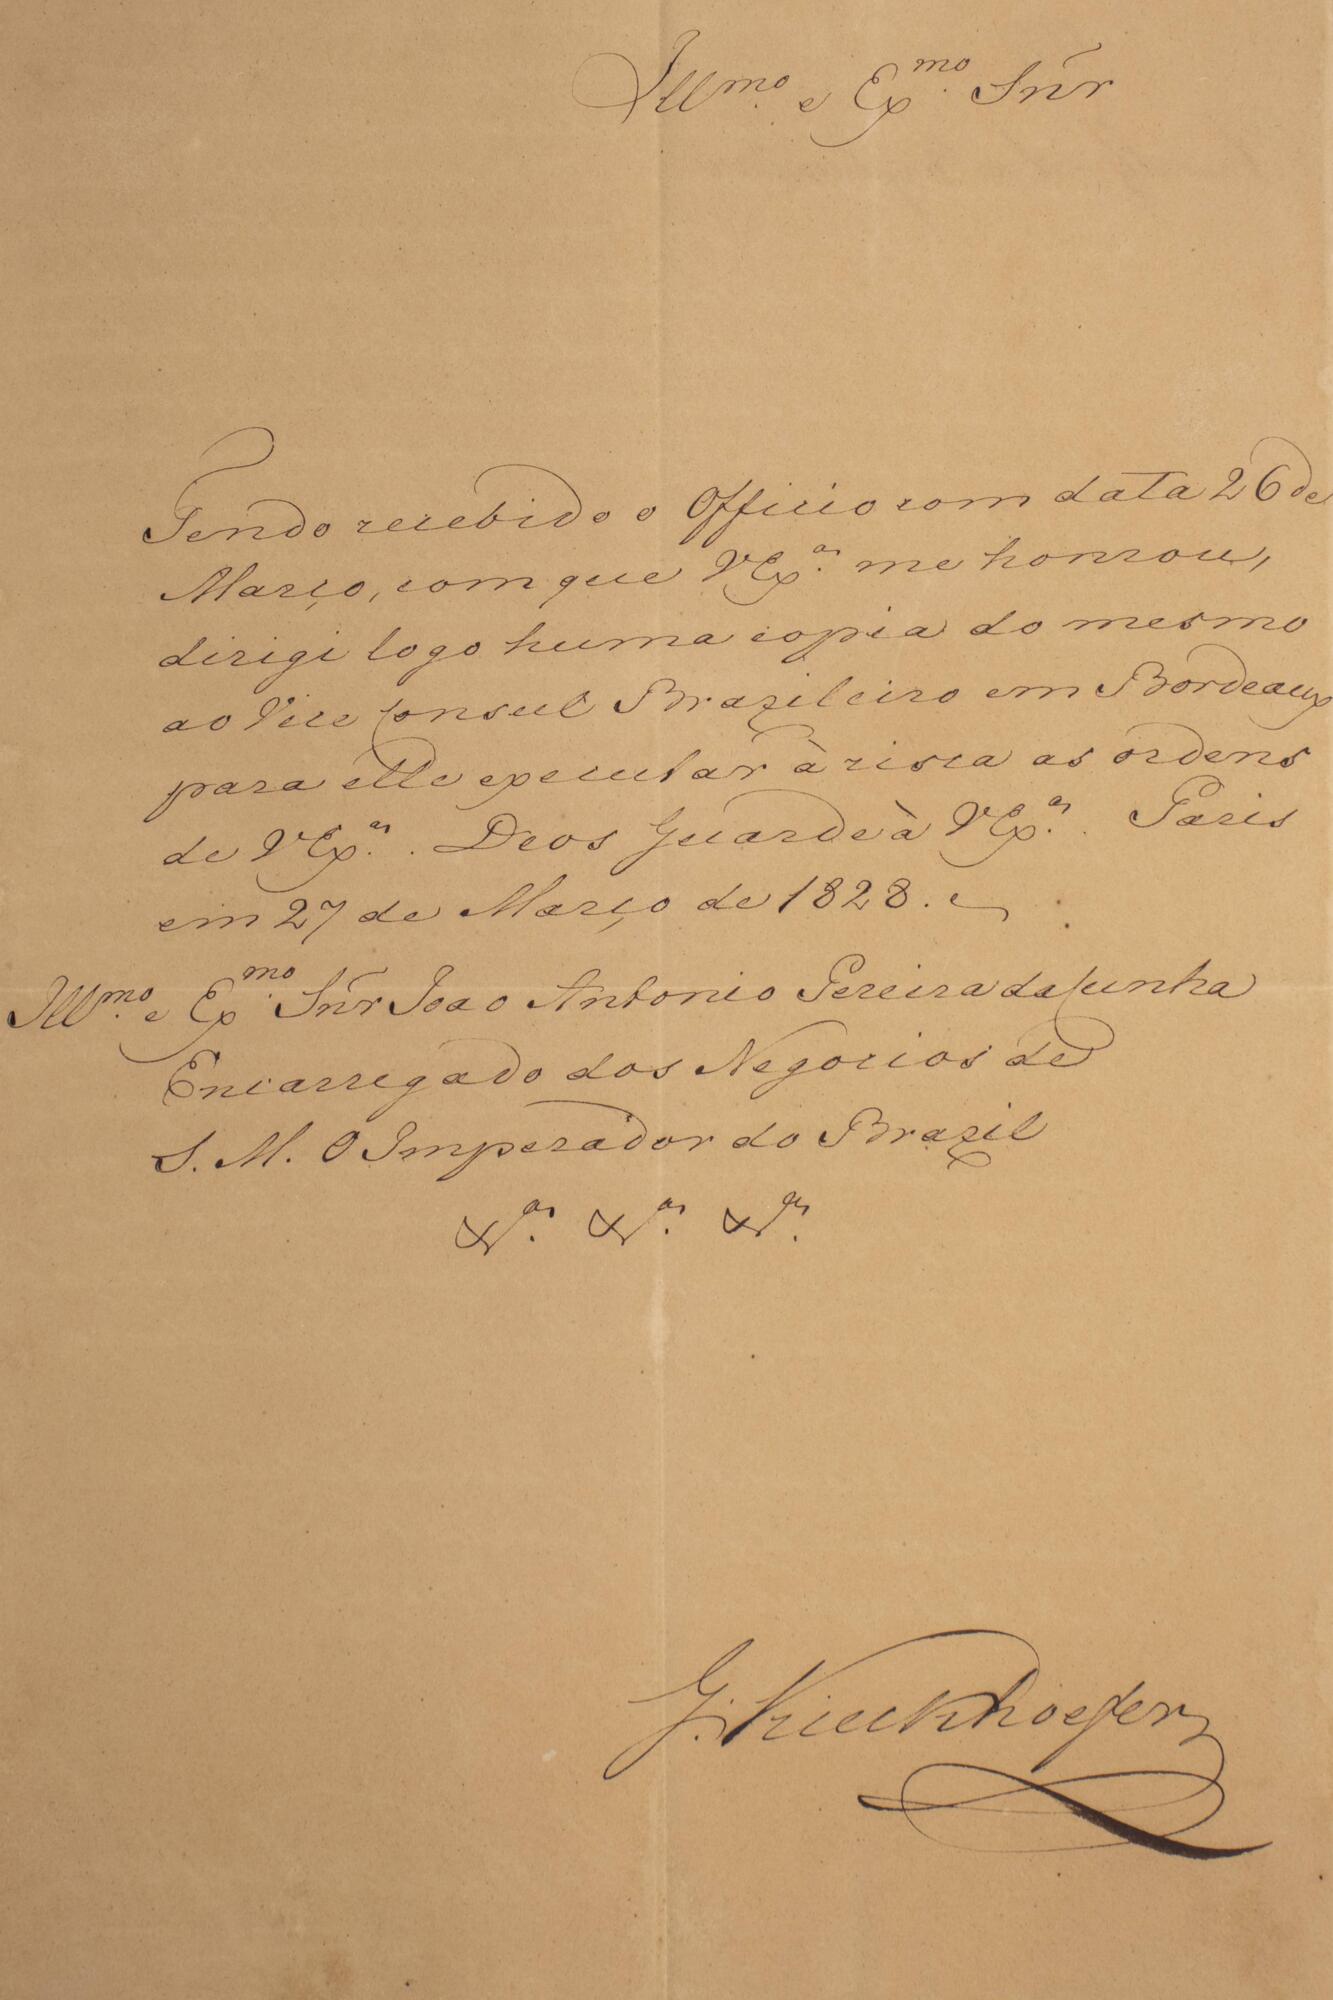 Illmo. e Exmo. Snr
Tendo recebido o Officio com data 26 de
Março, com que VExa. me honrou,
dirigi logo huma copia do mesmo
ao Vice Consul Brazileiro em Bordeaux
para elle executar à risca as ordens
de VExa. . Deos Guarde à VExa. . Paris
em 27 de Março de 1828.
Illmo. e Exmo. Snr Joao Antonio Pereira da Cunha
Encarregado dos Negocios de
S. M. O Imperador do Brazil
&a. &a. &a.
G. Kieckhoefer